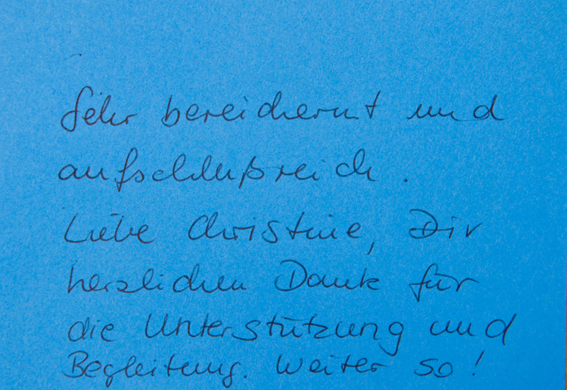 Sehr bereichernt und
aufschlußreich.
Liebe Christine, Dir
herzlichen Dank für
die Unterstützung und
Begleitung. Weiter so!